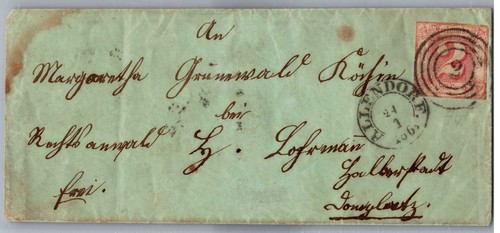 An
Margaretha Grünewald Köchin
bei
Rechtsanwald H. Lohrman
Halberstadt
Domplaatz.
frei.
ALLENDORF.
24
1
2